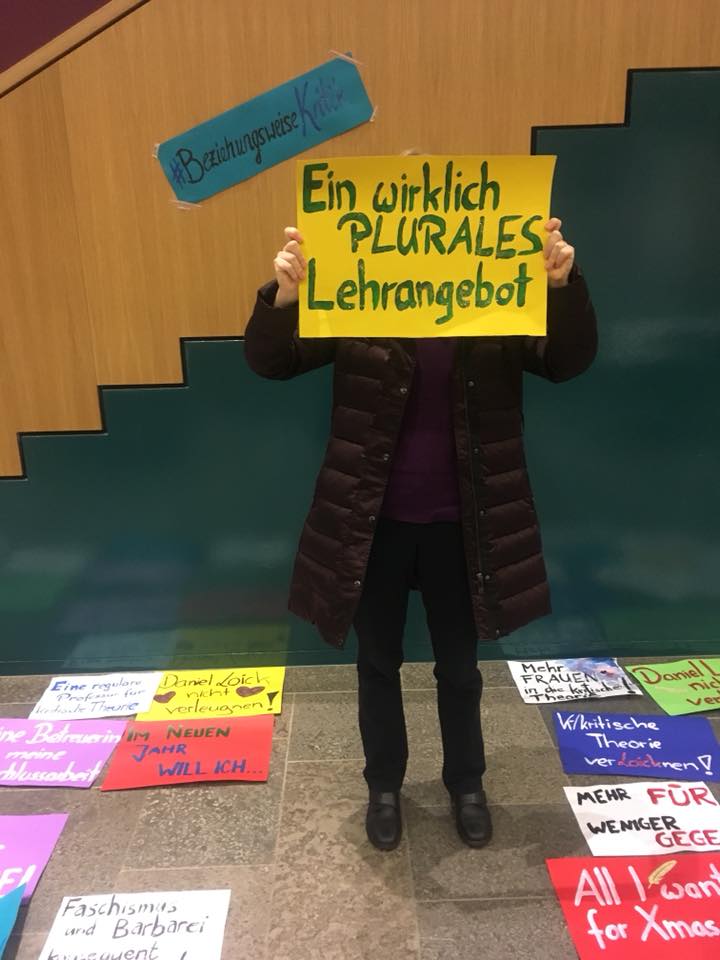 #BeziehungsweiseKritik
Ein wirklich
PLURALES
Lehrangebot
Eine reguläre
Professur für
kritische Theorie
Daniel Loick
nicht
verleugnen!
ine Betreuerin
meine
chlussarbeit
IM NEUEN
JAHR
WILL ICH...
E!
Faschismus
und Barbarei
konsequent
Mehr
FRAUEN
in die kritische
Theorie!
Daniel
nich
ver
K/kritische
Theorie
verLoicknen!
MEHR FÜR
WENIGER
GEGE
All I want
for Xmas